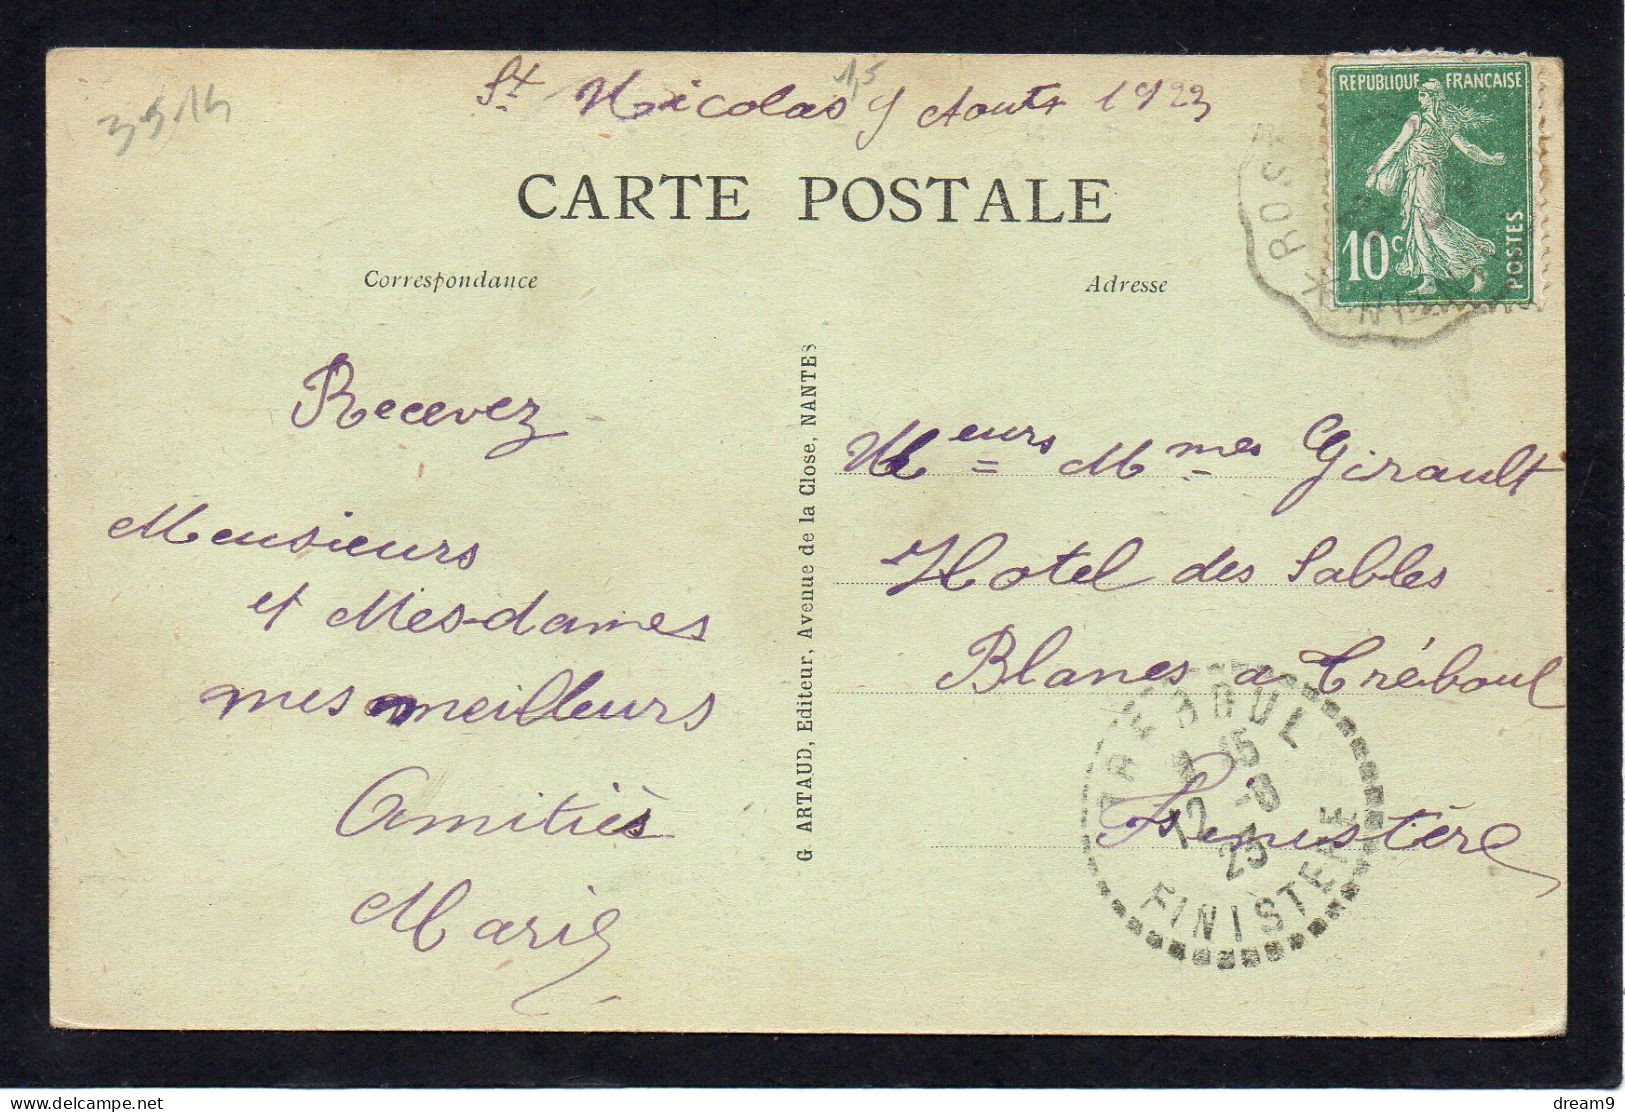 3514
1,5
St Nicolas 9 Aout 1923
CARTE POSTALE
Correspondance
Adresse
REPUBLIQUE FRANCAISE
10c
POSTES
ROS
Recevez
Mensieurs
et Mes-dames
mes meilleurs
Amitiés
Marie
G. ARTAUD, Editeur, Avenue de la Close, NANTES
Meurs Mmes Girault
Hotel des Sables
Blanes a Tréboul
Finistère
TREBOUL
15
12 -8
23
FINISTERE
delcampe.net
dream9